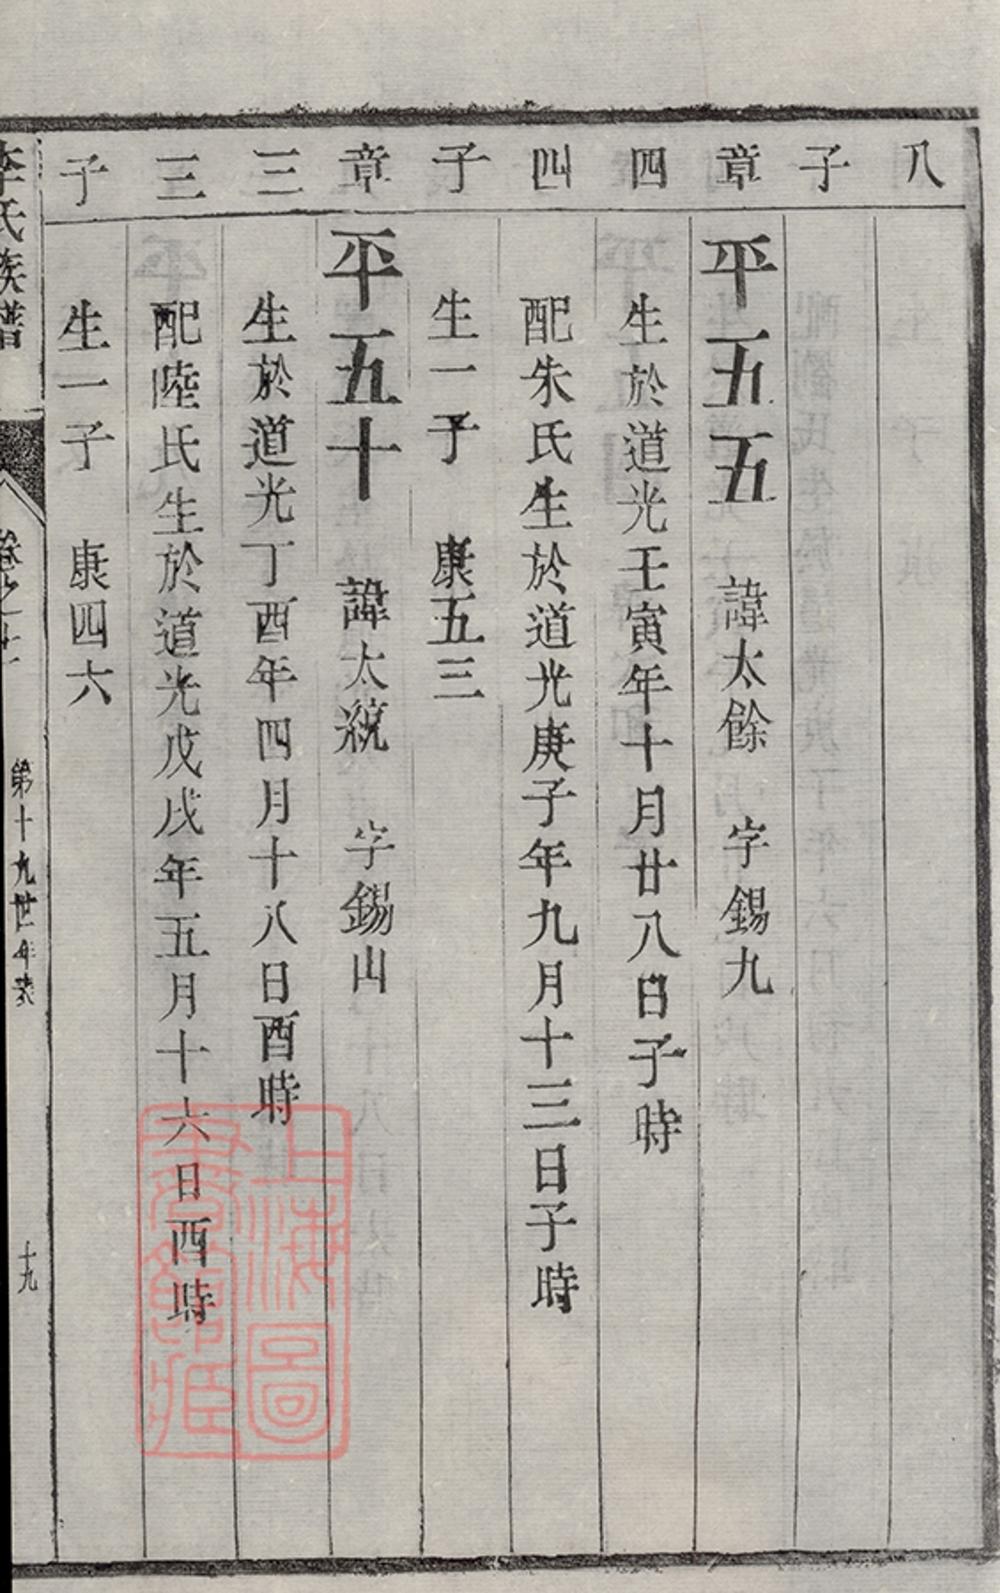 八
子
章 平五五 諱太餘 字錫九
四 生於道光壬寅年十月廿八日子時
四 配朱氏生於道光庚子年九月十三日子時
子 生一子 康五三
章 平五十 諱太統 字錫山
三 生於道光丁酉年四月十八日酉時
三 配陸氏生於道光戊戌年五月十六日酉時
子 生一子 康四六
李氏族譜 卷之十 第十九世年表 十九
上海圖書館藏